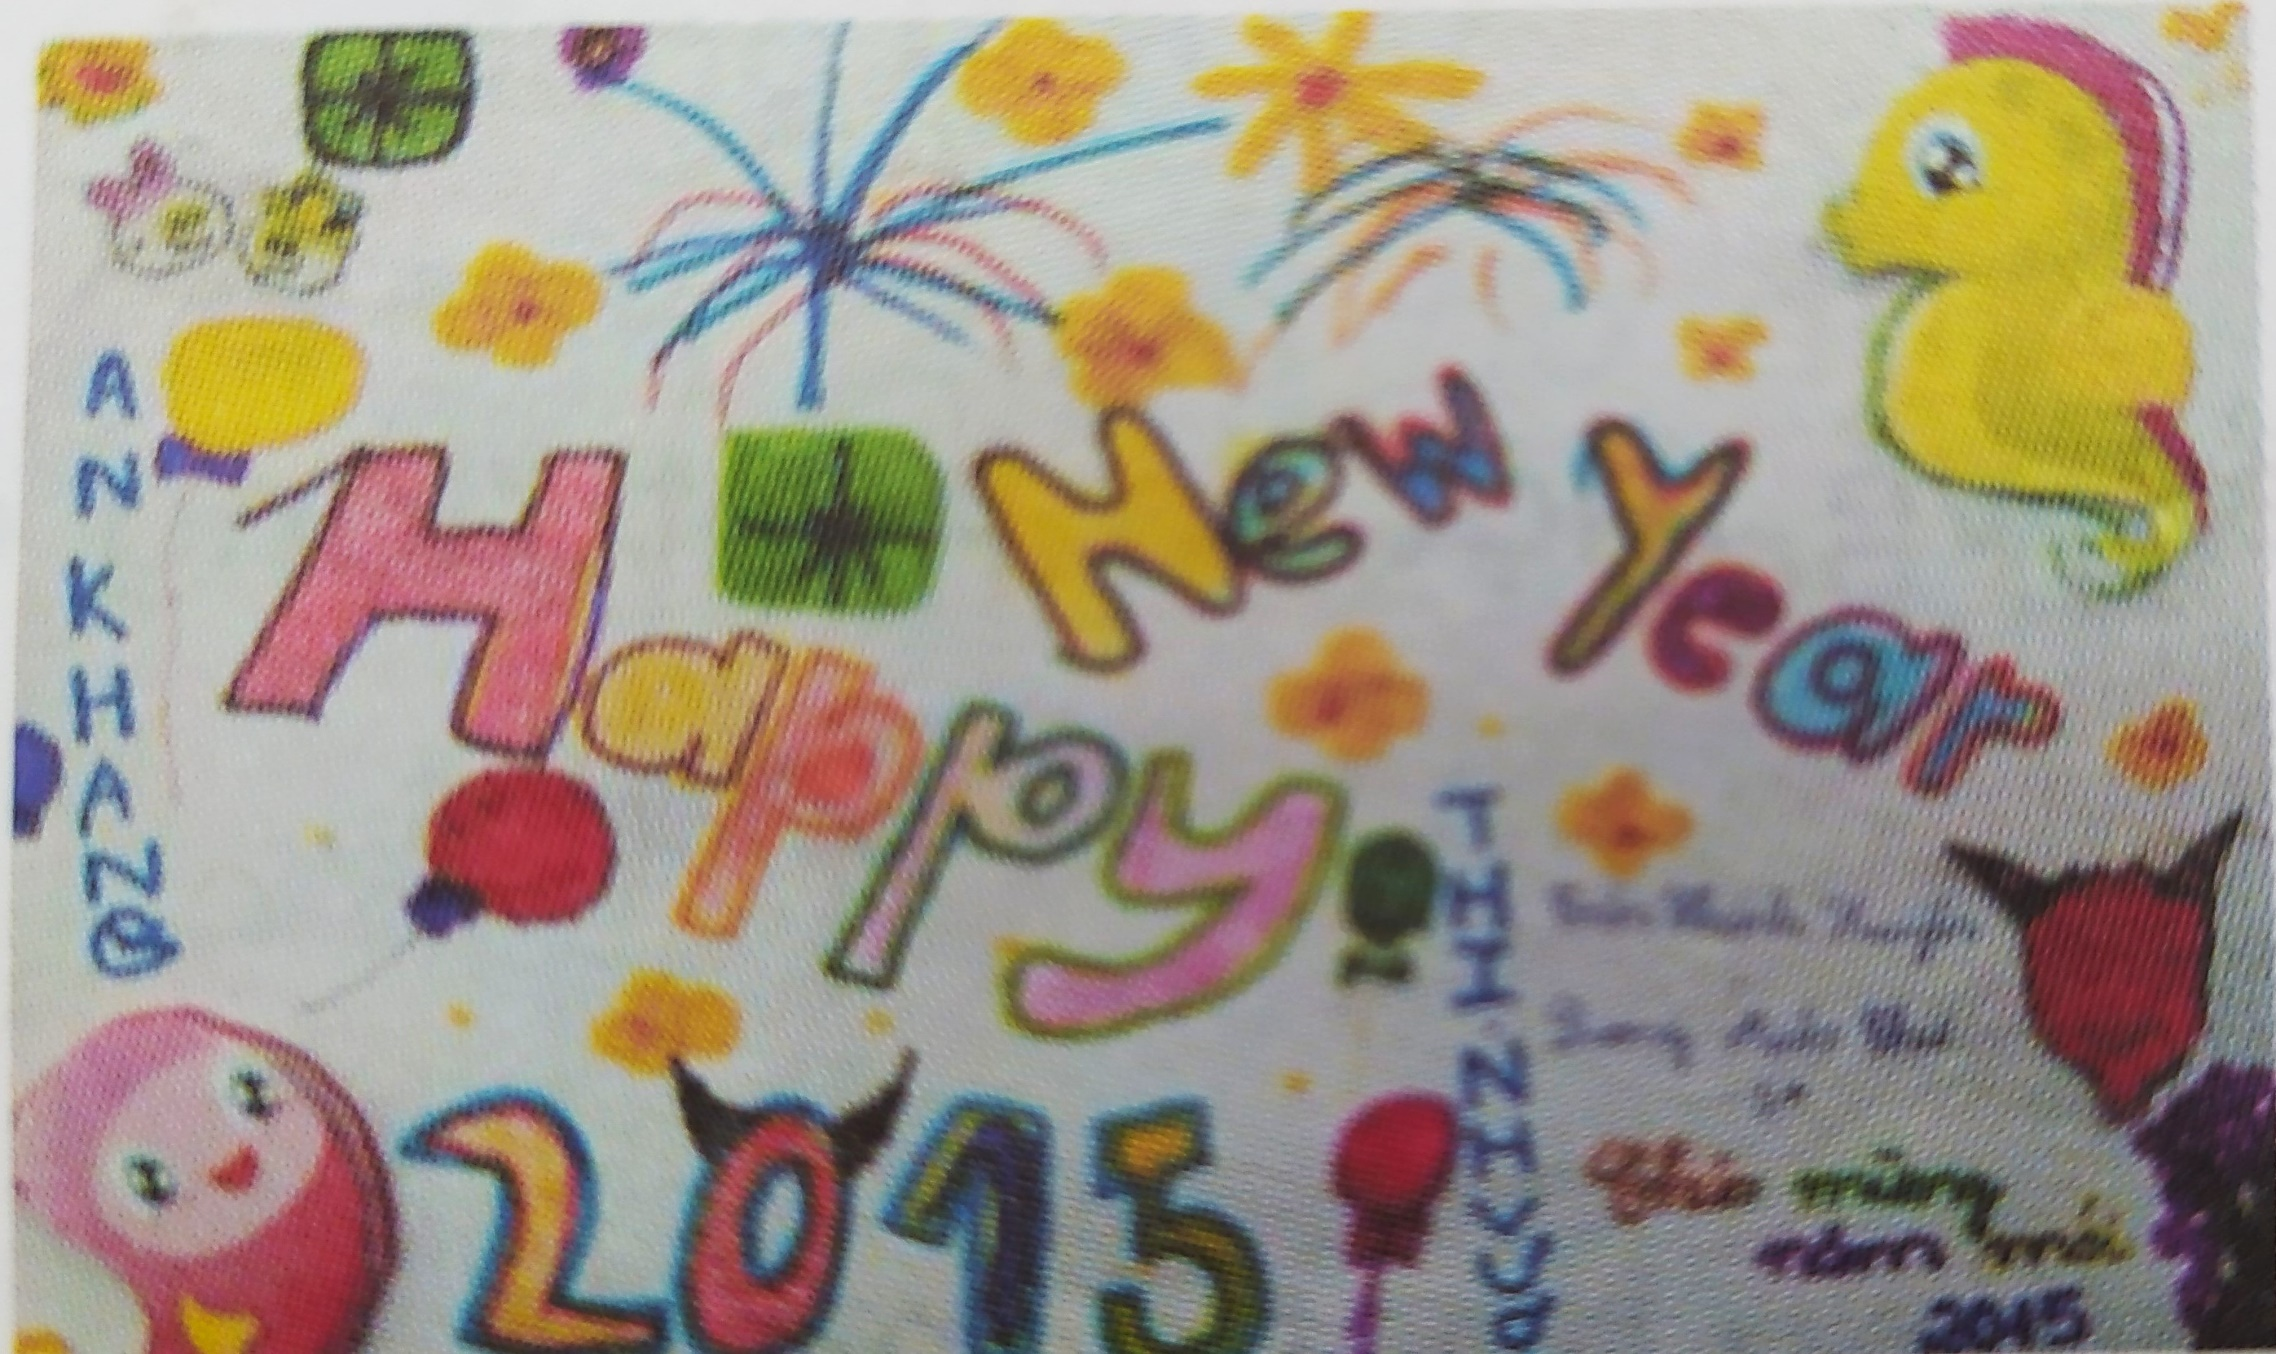 ANKHANG
Happy
New
Year
2015
THINHVUG
Chúc mừng
năm mới
2015